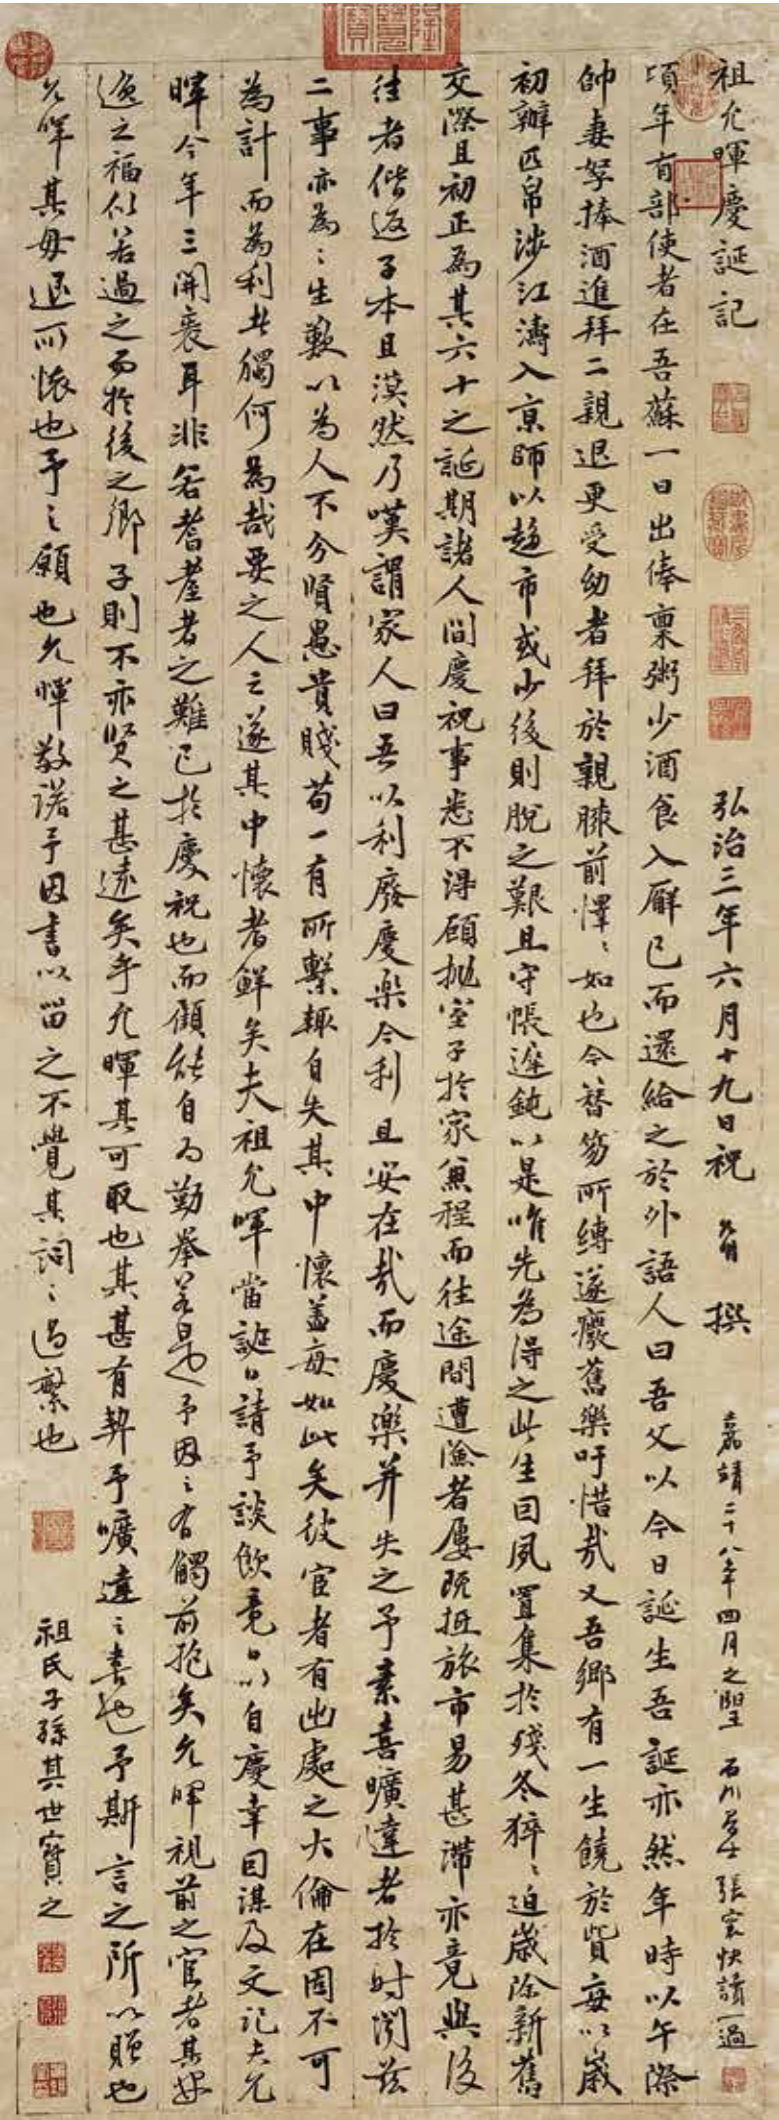 祖允暉慶誕記
弘治三年六月十九日祝允明撰
嘉靖二十八年四月之望 石川居士張寰快讀一過
頃年有部使者在吾蘇一日出俸稟粥少酒食入廨已而還給之於外語人曰吾父以今日誕生吾誕亦然年時以午際
帥妻孥捧酒進拜二親退更受幼者拜於親膝前懌〻如也今簪笏所縛遂癈舊樂吁惜哉又吾鄉有一生饒於貲每以歲
初辦匹帛涉江濤入京師以趍市或少後則脫之艱且守悵遲鈍以是唯先為得之此生因夙置集於殘冬猝〻迫歲除新舊
交際且初正為其六十之誕期諸人間慶祝事悉不得顧拋室子於家兼程而往途間遭濤者屢既抵旅市易甚滯亦竟與後
往者偕返子本且漠然乃嘆謂家人曰吾以利廢慶樂今利且安在哉而慶樂并失之予素喜曠達者於時閱茲
二事亦為〻生歎以為人不分賢愚貴賤苟一有所繫輒自失其中懷盖每如此矣彼宦者有出處之大倫在固不可
為計而為利者獨何為哉要之人之遂其中懷者鮮矣夫祖允暉當誕日請予談飲竟日以自慶幸因謀及文記夫允
暉今年三開袠耳非若耆耋者之難已於慶祝也而顧能自為勤拳若是予因之有觸前抱矣允暉視前之宦者其安
逸之福似若過之而於後之鄉子則不亦賢之甚遠矣乎允暉其可取也其甚有契予曠達之書也予斯言之所以贈也
允暉其毋逼所懷也予之願也允暉敬諾予因書以留之不覺其詞〻過繁也
祖氏子孫其世寶之